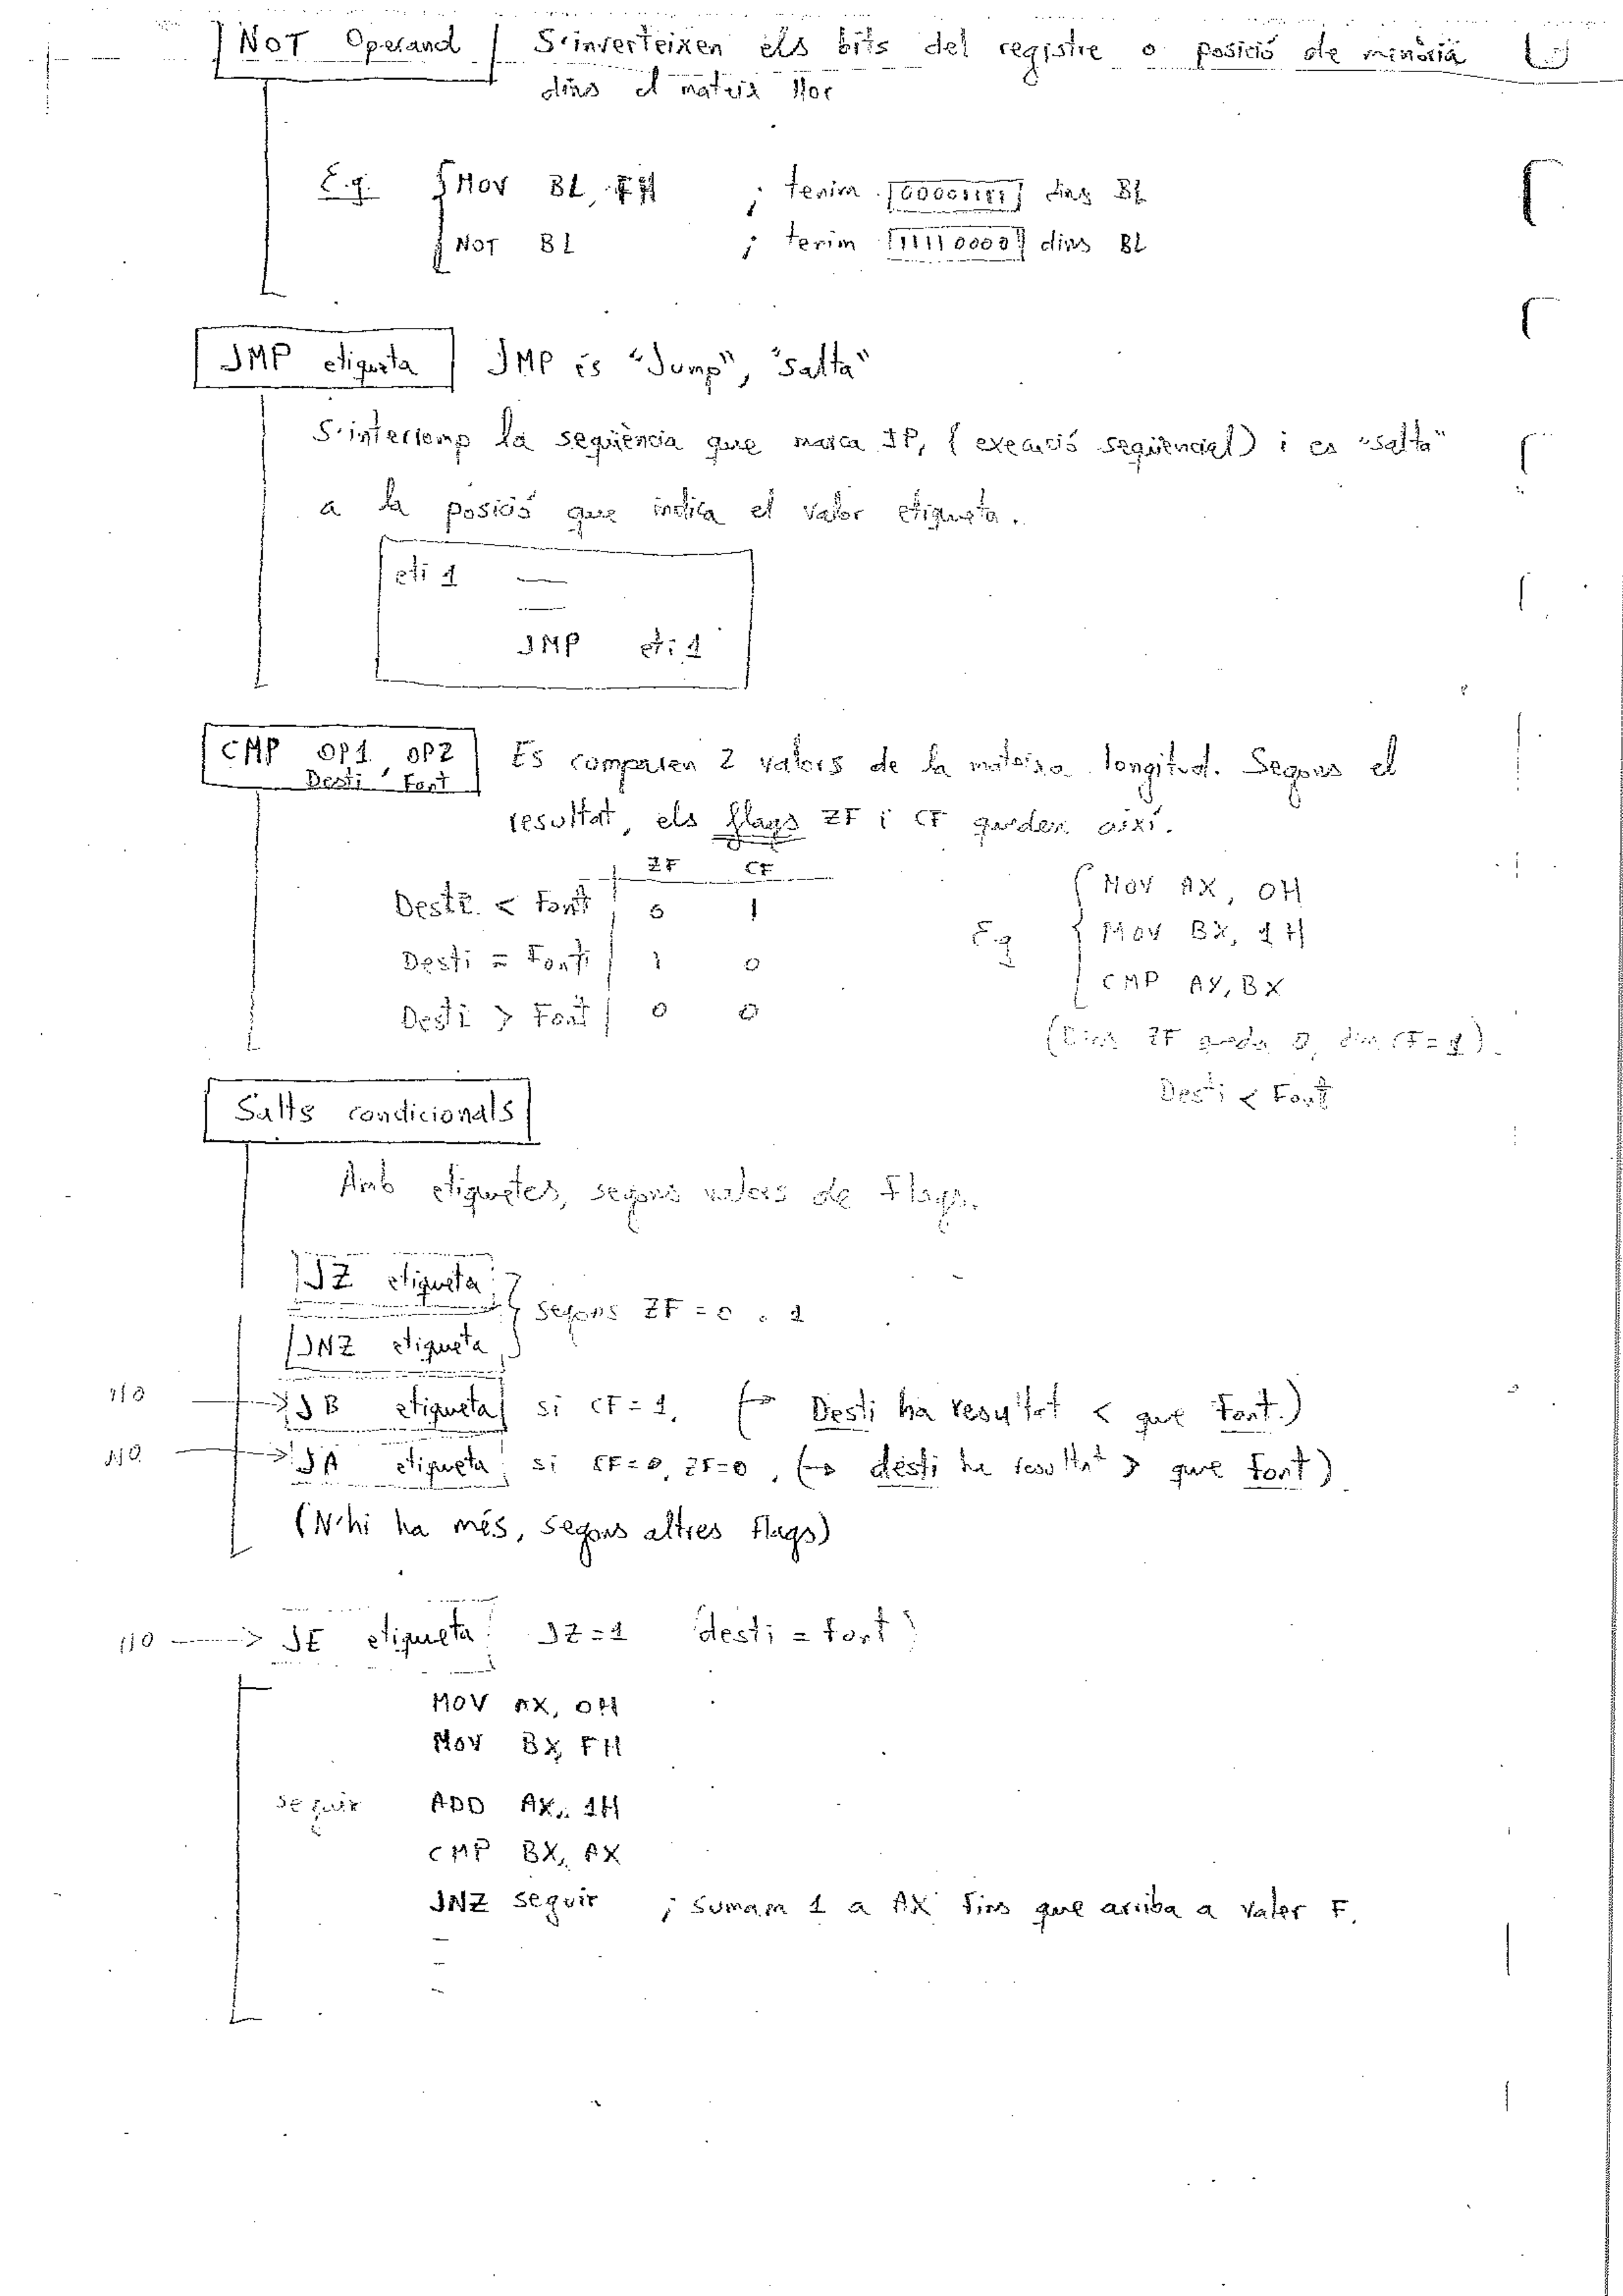 NOT Operand S'inverteixen els bits del registre o posició de memòria
dins el mateix lloc
E.g. MOV BL, FH ; tenim 00001111 dins BL
NOT BL ; tenim 11110000 dins BL
JMP etiqueta JMP és "Jump", "Salta"
S'interromp la seqüència que marca IP, (execució seqüencial) i es "salta"
a la posició que indica el valor etiqueta.
eti 1 —
—
JMP eti 1
CMP OP1, OP2 Es comparen 2 valors de la mateixa longitud. Segons el
Desti, Font
resultat, els flags ZF i CF queden així.
ZF CF
Desti < Font 0 1
Desti = Font 1 0
Desti > Font 0 0
E.g MOV AX, 0H
MOV BX, 1H
CMP AX, BX
(Dins ZF queda 0, dins CF=1).
Desti < Font
Salts condicionals
Amb etiquetes, segons valors de Flags.
JZ etiqueta
Segons ZF = 0 o 1
JNZ etiqueta
110 → JB etiqueta si CF = 1. (→ Desti ha resultat < que Font.)
110 → JA etiqueta si CF=0, ZF=0, (→ desti ha resultat > que Font)
(N'hi ha més, segons altres flags)
110 → JE etiqueta JZ=1 desti = font
MOV AX, 0H
MOV BX, FH
seguir ADD AX, 1H
CMP BX, AX
JNZ seguir ; Sumam 1 a AX fins que arriba a valer F.